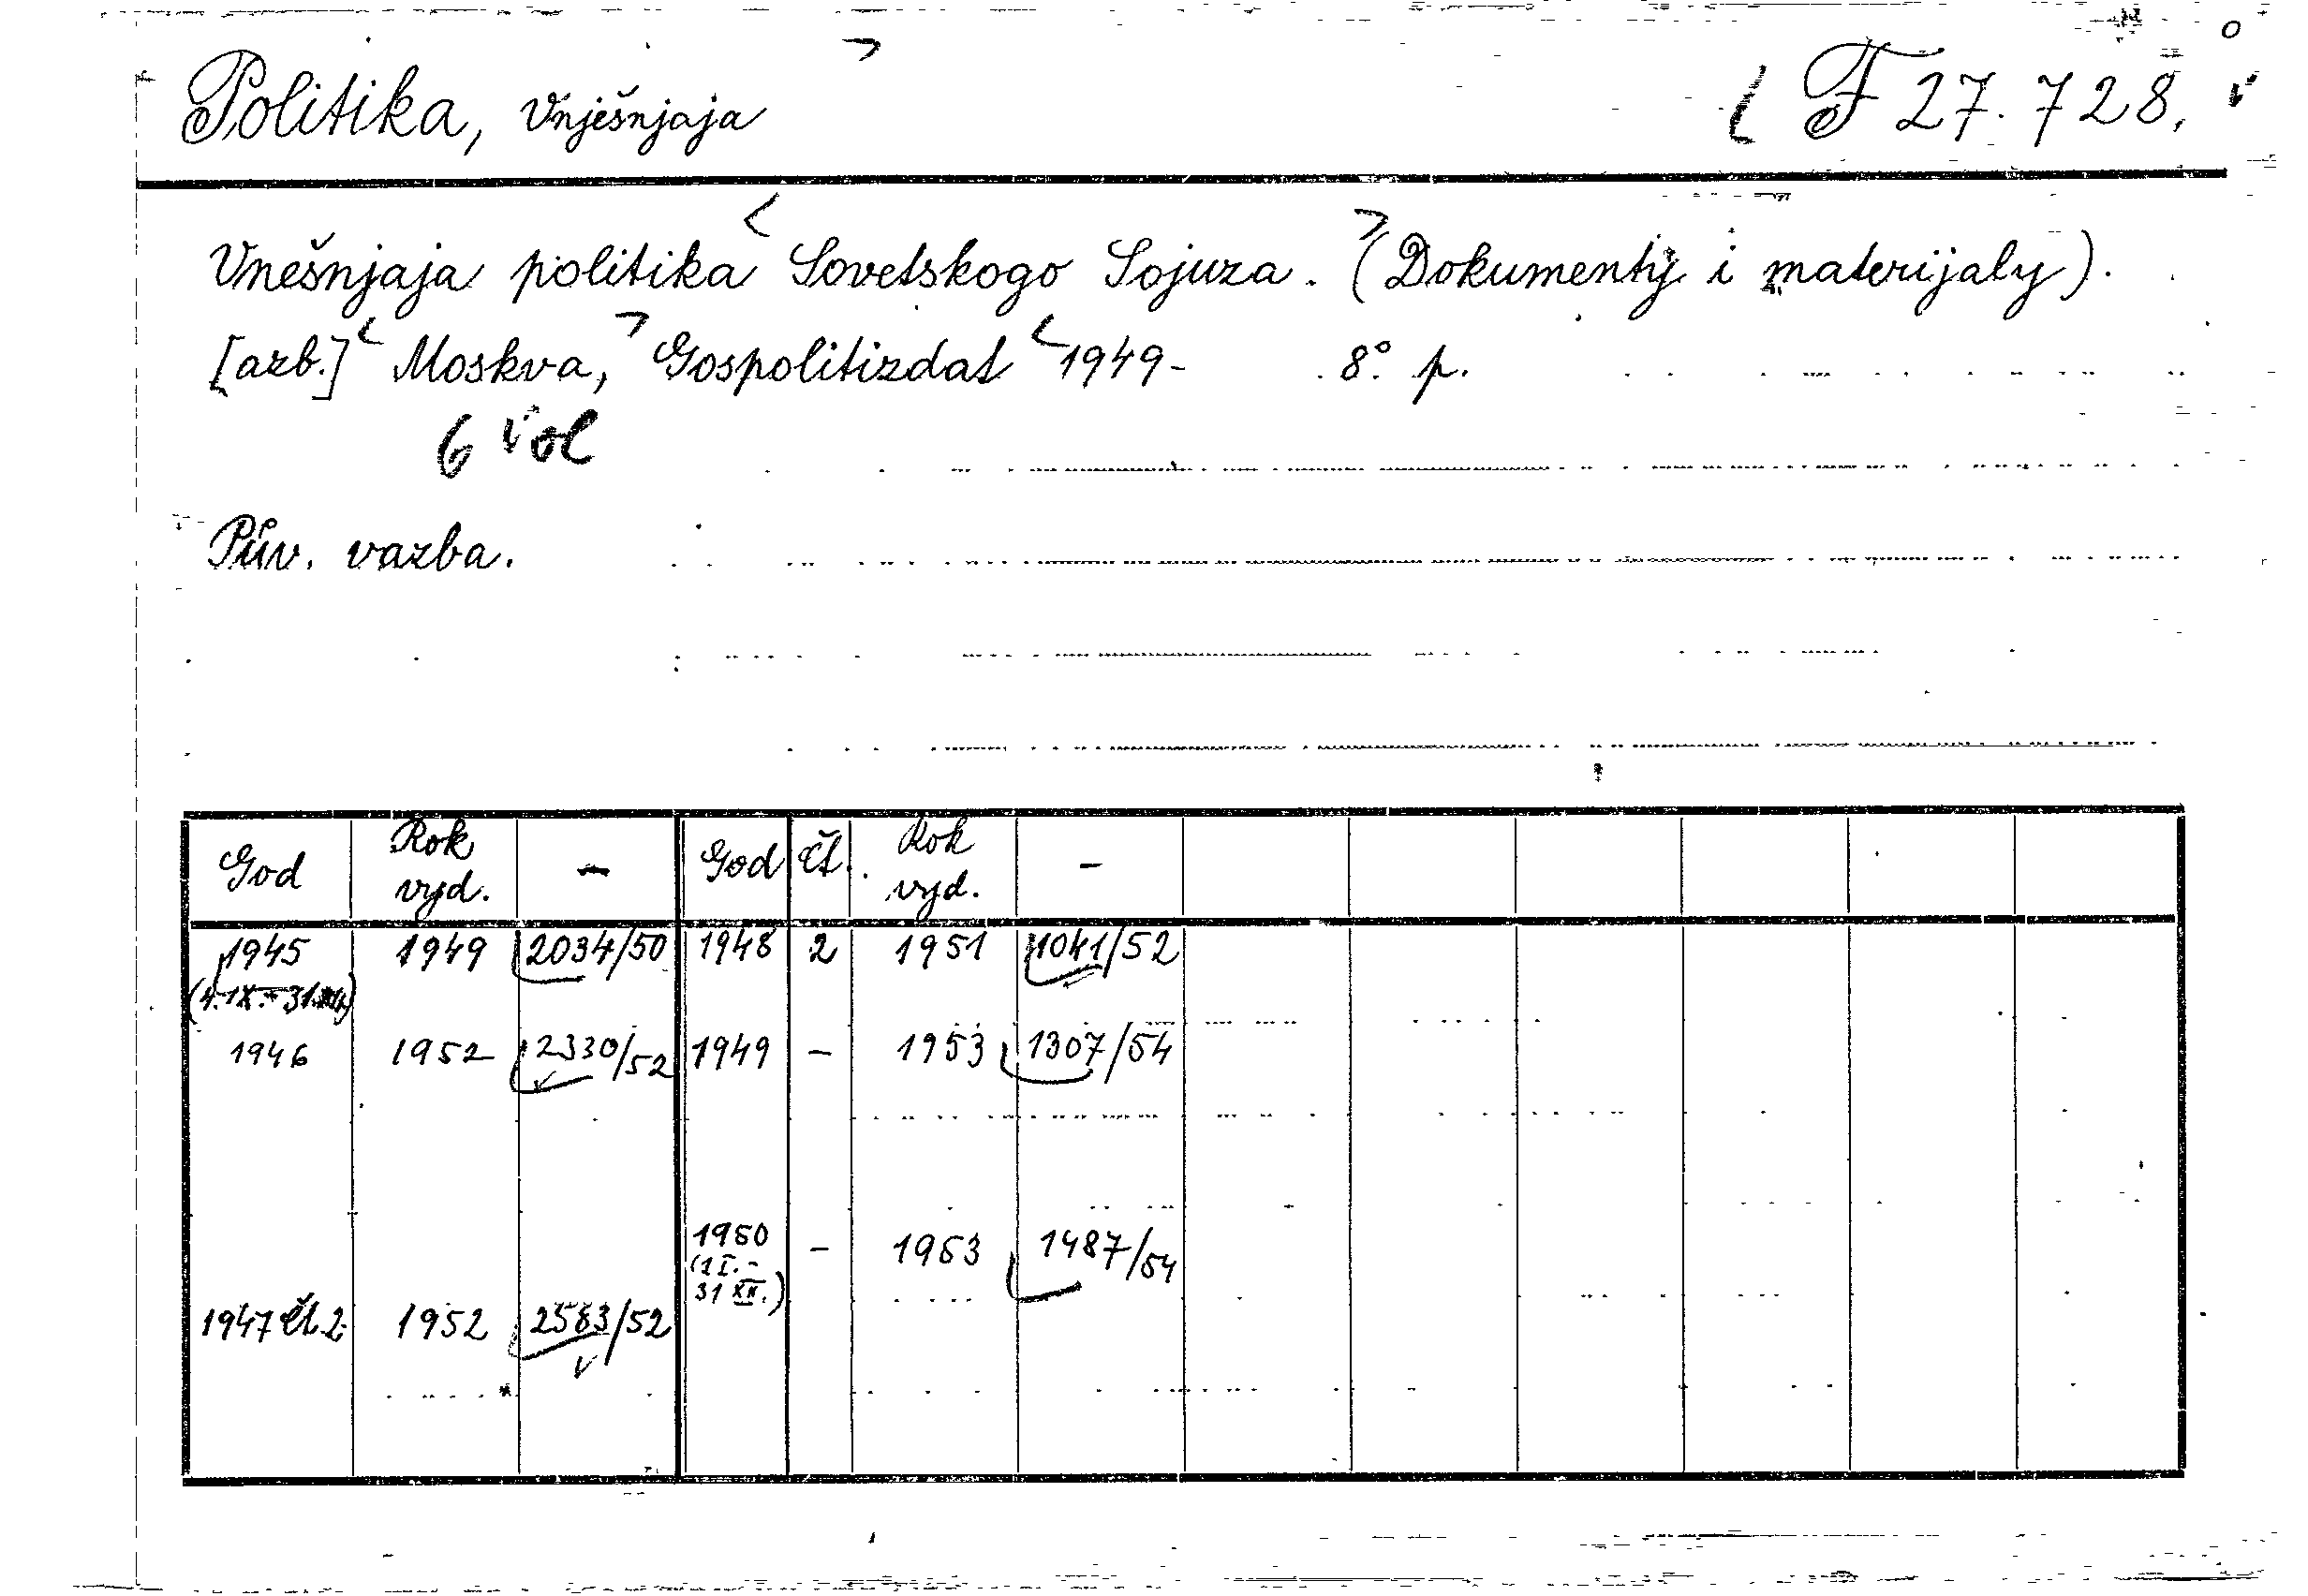 Politika, Vnješnjaja F 27.728,
Vnešnjaja politika Sovetskogo Sojuza. (Dokumenty i materijaly).
[azb.] Moskva, Gospolitizdat 1949- 8° p.
6 vol
Pův. vazba.
God Rok vyd. - God čt. Rok vyd. -
1945 1949 2034/50 1948 2 1951 1041/52
(4.IX.-31.XII.)
1946 1952 2330/52 1949 - 1953 1307/54
1950 - 1953 1487/54
(1 I.-
31 XII.)
1947 čt. 2. 1952 2583/52